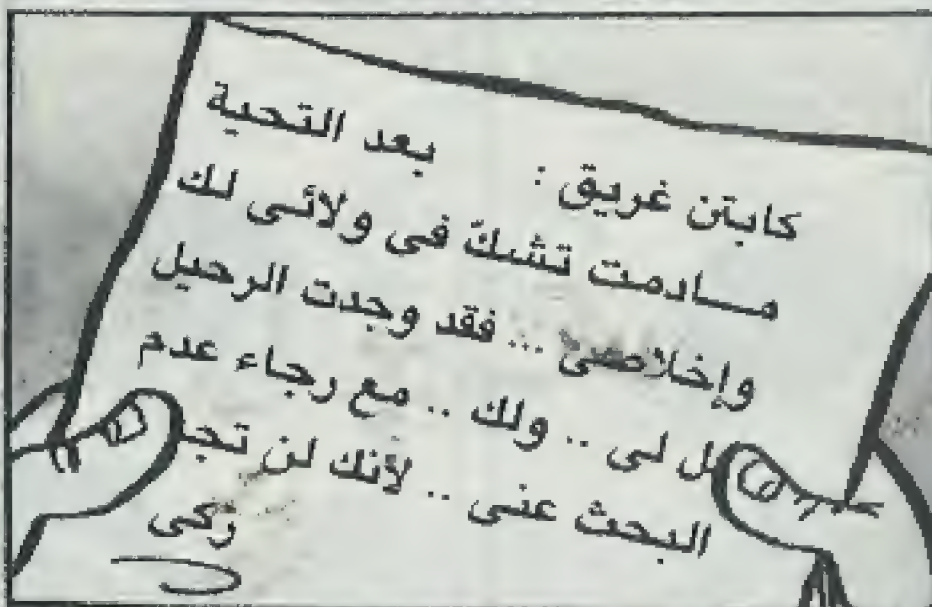 كابتن غريق : بعد التحية
مـــادمت تشكّ فى ولائـى لك
وإخلاصى ... فقد وجدت الرحيل
ل لى .. ولك .. مع رجاء عدم
البحث عنى .. لأنك لن تجـ
زكى